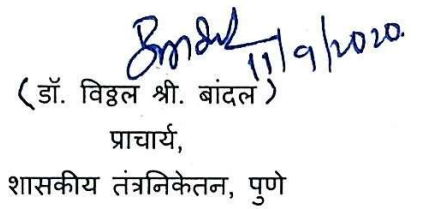 11/9/2020.
(डॉ. विठ्ठल श्री. बांदल)
प्राचार्य,
शासकीय तंत्रनिकेतन, पुणे